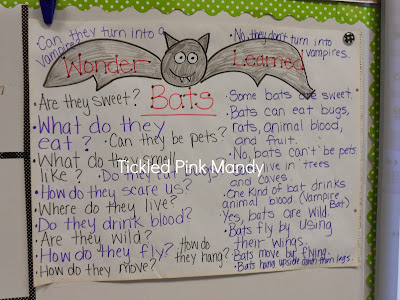 Can they turn into a
Vampire?
Wonder
Bats
• Are they sweet?
• What do they
eat?
• Can they be pets?
• What do
like? • Do
• How do they scare us?
• Where do they live?
• Do they drink blood?
• Are they wild?
• How do they fly?
How do
they hang?
• How do they move?
• No, they don't turn into
vampires.
Learned
Some bats are sweet.
Bats can eat bugs,
rats, animal blood,
and fruit.
• No, bats can't be pets.
live in trees
and caves.
• One kind of bat drinks
animal blood. (Vampire
Bat)
Yes, bats are wild.
• Bats fly by using
their wings.
Bats move by flying.
• Bats hang upside down
legs.
Tickled Pink Mandy